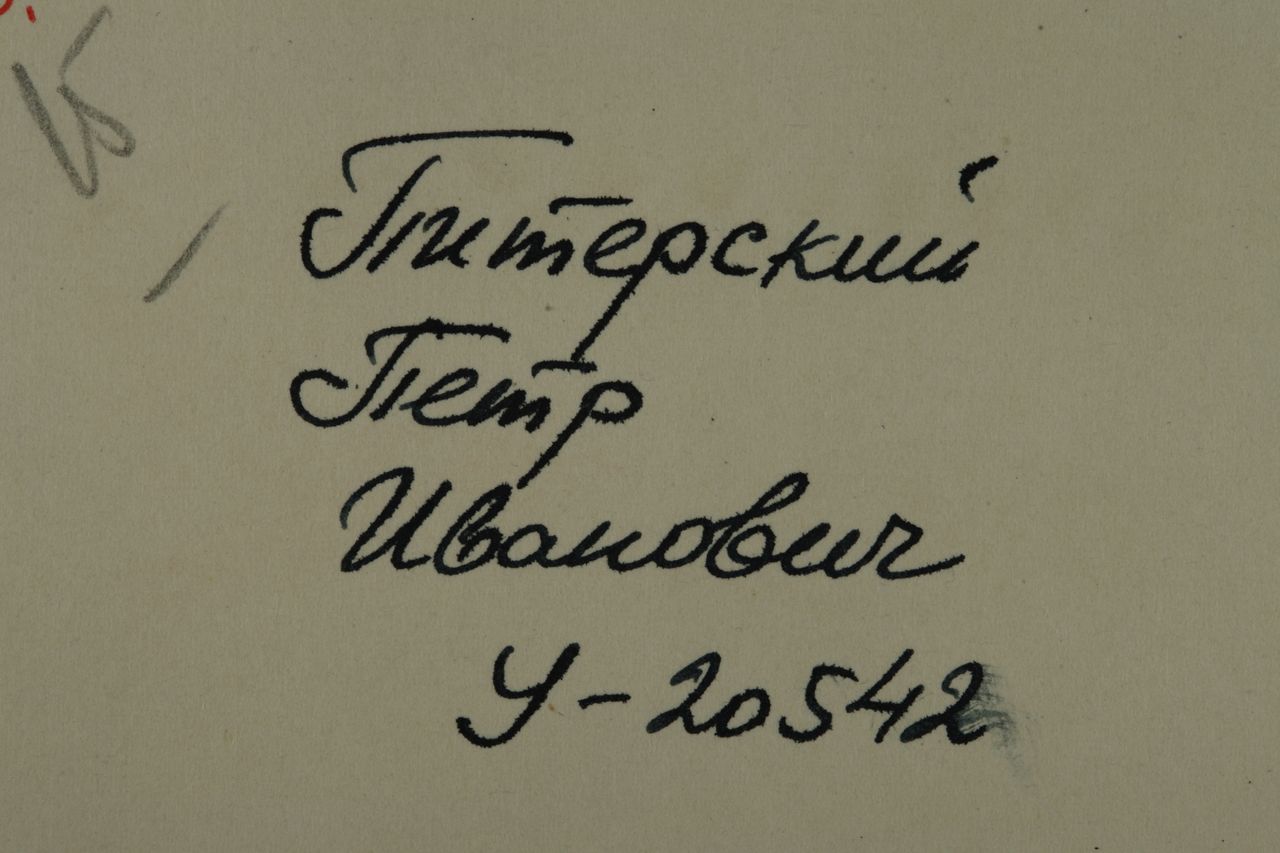 Питерский
Петр
Иванович
У-20542